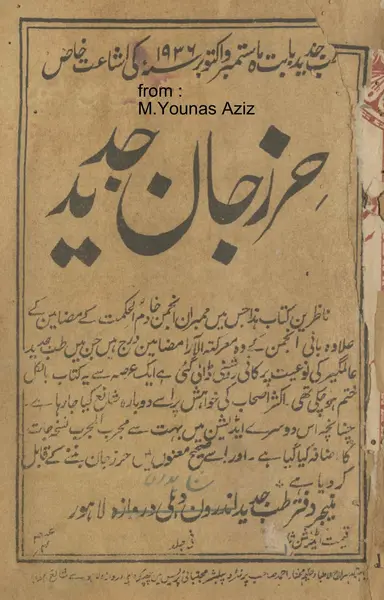 طب جدید بابت ماہ ستمبر و اکتوبر ۱۹۳۶ سنہ کی اشاعت خاص
from :
M.Younas Aziz
حرز جان جدید
ناظرین کتاب ہذا جس میں ممبران انجمن خادم الحکمت کے مضامین کے
علاوہ بانی انجمن کے وہ معرکتہ الآرا مضامین درج ہیں جن میں طب جدید
عالمگیر کی نوعیت پر کافی روشنی ڈالی گئی ہے ایک عرصہ سے یہ کتاب بالکل
ختم ہو چکی تھی۔ اکثر اصحاب کی خواہش پر اسے دوبارہ شائع کیا جا رہا ہے۔
چنانچہ اس دوسرے ایڈیشن میں بہت سے مجرب المجرب نسخہ جات
کا اضافہ کیا گیا ہے۔ اور اسے صحیح معنوں میں حرز جان بننے کے قابل
کر دیا ہے۔
منیجر دفتر طب جدید اندرون دہلی دروازہ لاہور
قیمت
فی جلد